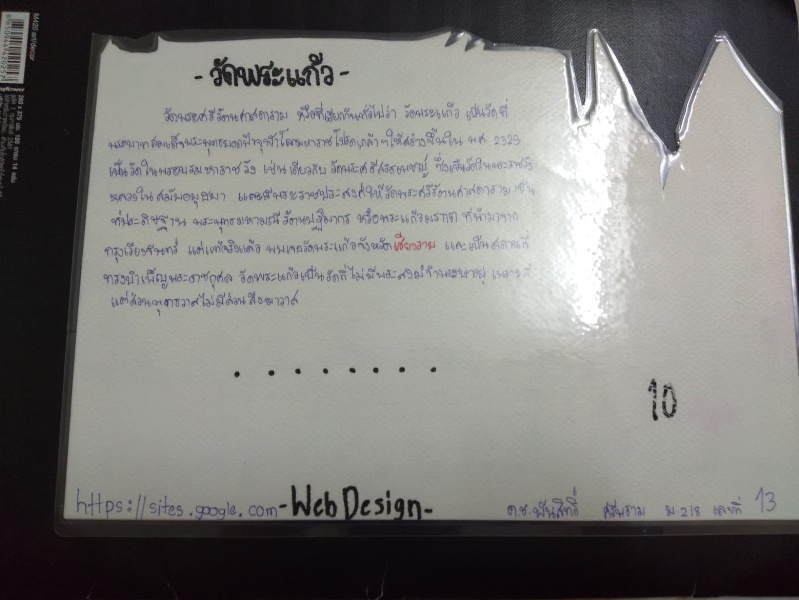 -วัดพระแก้ว-
วัดพระศรีรัตนศาสดาราม หรือที่เรียกกันทั่วไปว่า วัดพระแก้ว เป็นวัดที่
พระบาทสมเด็จพระพุทธยอดฟ้าจุฬาโลกมหาราช โปรดเกล้าฯ ให้สร้างขึ้นใน พ.ศ 2325
เป็นวัดในพระบรมมหาราชวัง เช่นเดียวกับ วัดพระศรีสรรเพชญ์ ซึ่งเป็นวัดในพระราชวัง
หลวงในสมัยอยุธยา และมีพระราชประสงค์ให้วัดพระศรีรัตนศาสดาราม เป็น
ที่ประดิษฐาน พระพุทธมหามณีรัตนปฏิมากร หรือพระแก้วมรกต ที่นำมาจาก
กรุงเวียงจันทร์ แต่แท้จริงแล้ว พบเจอวัดพระแก้วจังหวัดเชียงราย และเป็นสถานที่
ทรงบำเพ็ญพระราชกุศล วัดพระแก้วเป็นวัดที่ไม่มีพระสงฆ์จำพรรษาอยู่ เพราะมี
แต่ส่วนพุทธาวาสไม่มีส่วนสังฆาวาส
. . . . . . . .
10
https://sites.google.com -Web Design- ด.ช. พันสิทธิ์ ม.2/8 เลขที่ 13
M&G art/decor